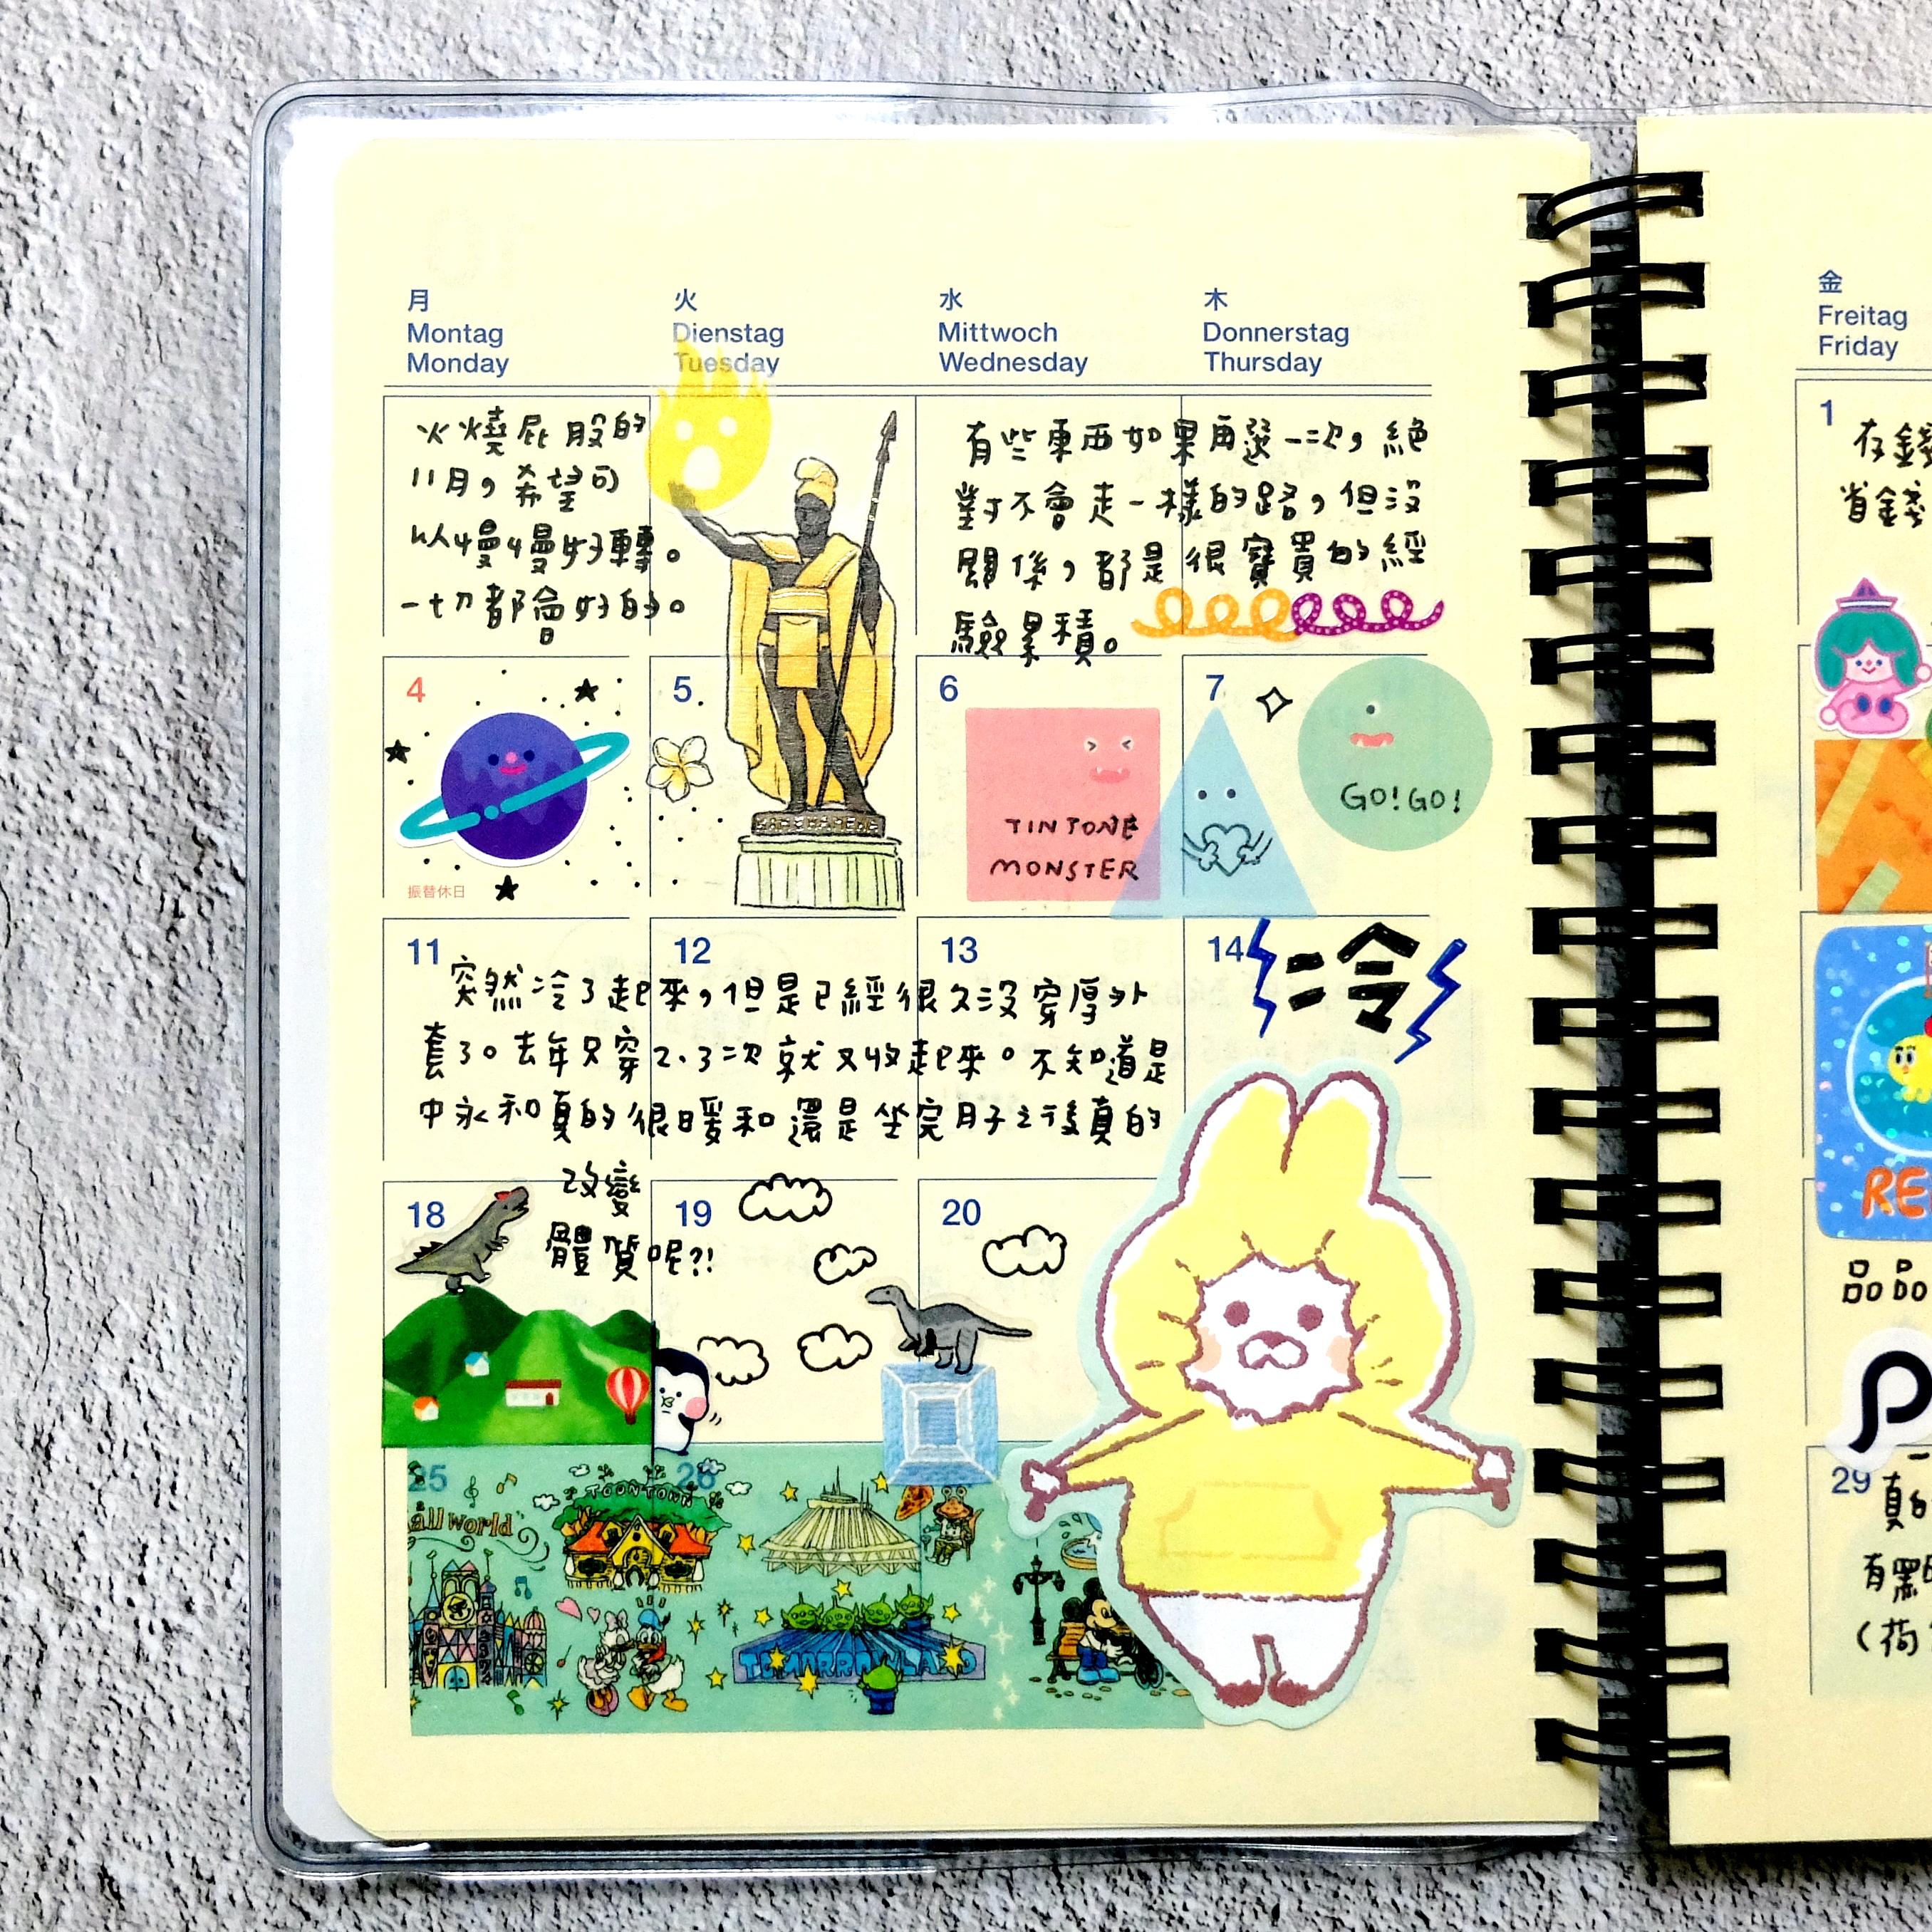 月
Montag
Monday
火
Dienstag
Tuesday
水
Mittwoch
Wednesday
木
Donnerstag
Thursday
金
Freitag
Friday
火燒屁股的
11月，希望可
以慢慢好轉。
一切都會好的。
有些東西如果再選一次，絕
對不會走一樣的路，但沒
關係，都是很寶貴的經
驗累積。
1
存錢
省錢
4
振替休日
5
6
TINTONE
MONSTER
7
GO!GO!
11
12
13
14
突然冷了起來，但是已經很久沒穿厚外
套了。去年只穿2、3次就又收起來。不知道是
中永和真的很暖和還是坐完月子之後真的
改變
體質呢?!
冷
RE
18
19
20
品品
P
25
26
all world
TOONTOWN
TOMORROWLAND
29
真的
有黑
(荷